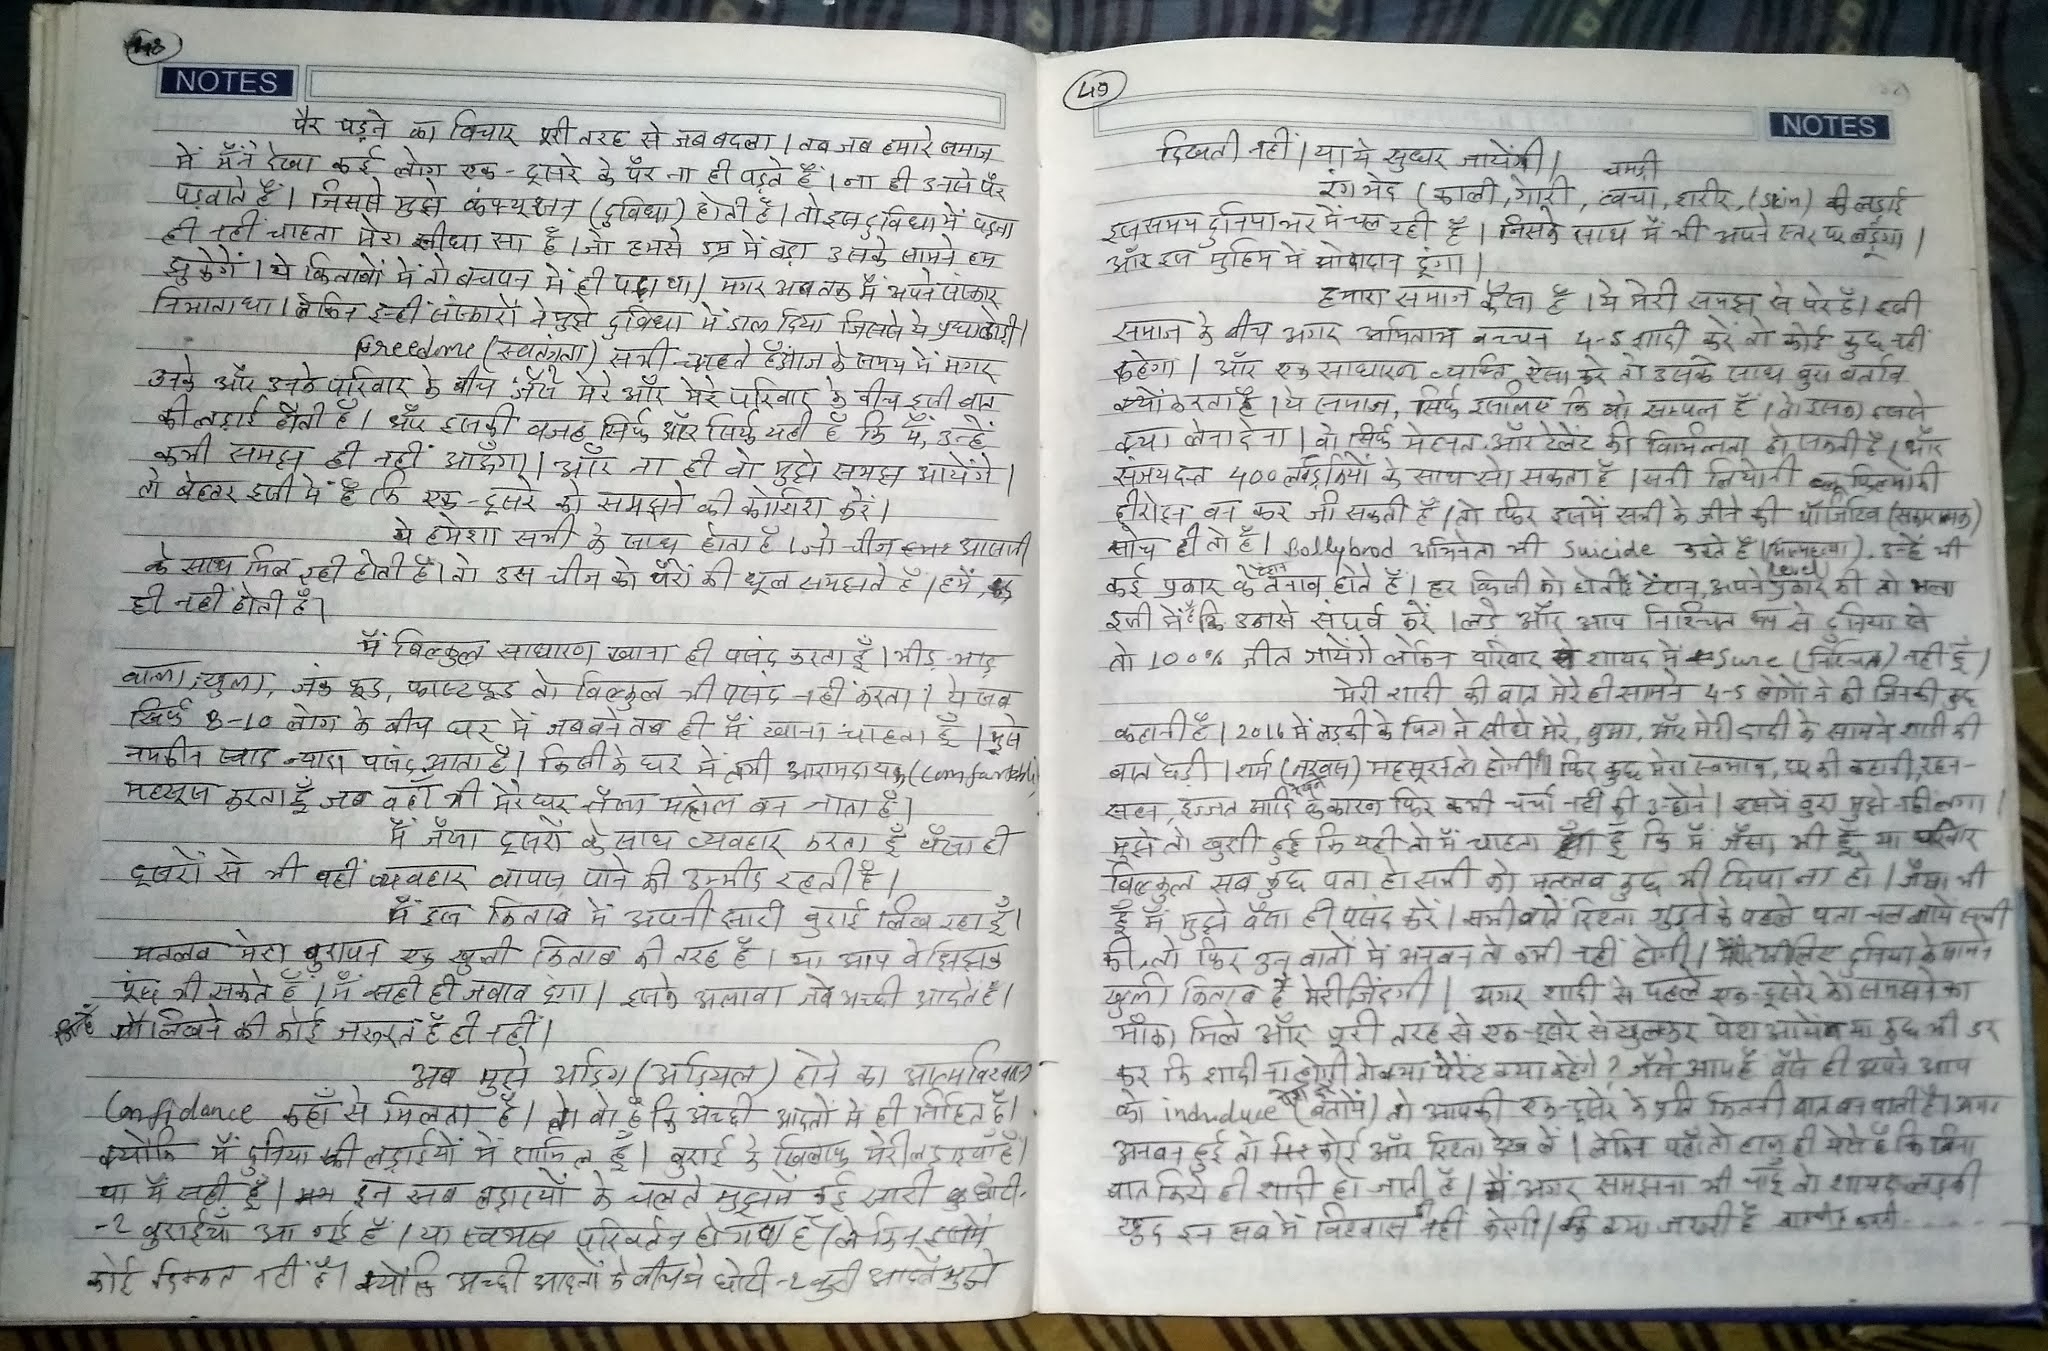 48
NOTES
पैर पड़ने का विचार पूरी तरह से जब बदला। तब जब हमारे समाज
में मैंने देखा कई लोग एक-दूसरे के पैर ना ही पड़ते हैं। ना ही उनसे पैर
पड़वाते हैं। जिससे मुझे कंफ्यूशन (दुविधा) होती है। तो इस दुविधा में पड़ना
ही नहीं चाहता मेरा सीधा सा है। जो हमसे उम्र में बड़ा उसके सामने हम
झुकेगें। ये किताबों में तो बचपन में ही पढ़ा था। मगर अब तक मैं अपने संस्कार
निभाता था। लेकिन इन्हीं संस्कारों ने मुझे दुविधा में डाल दिया जिससे ये प्रथा छोड़ी।
Freedome (स्वतंत्रता) सभी चाहते हैं आज के समय में मगर
उनके और उनके परिवार के बीच जैसे मेरे और मेरे परिवार के बीच इसी बात
की लड़ाई होती है। और इसकी वजह सिर्फ और सिर्फ यही है कि मैं, उन्हें
कभी समझ ही नहीं आऊँगा। और ना ही वो मुझे समझ आयेंगे।
तो बेहतर इसी में है कि एक-दूसरे को समझने की कोशिश करें।
ये हमेशा सभी के साथ होता है। जो चीज हमें आसानी
के साथ मिल रही होती है। तो उस चीज को पैरों की धूल समझते हैं। हमें, कद्र
ही नहीं होती है।
मैं बिल्कुल साधारण खाना ही पसंद करता हूँ। भीड़-भाड़
वाला, खुला, जंक फूड, फास्टफूड तो बिल्कुल भी पसंद नहीं करता। ये जब
सिर्फ 8-10 लोग के बीच घर में जब बने तब ही मैं खाना चाहता हूँ। मुझे
नमकीन स्वाद ज्यादा पसंद आता है। किसी के घर में तभी आरामदायक
महसूस करता हूँ जब वहाँ भी मेरे घर जैसा महोल बन जाता है।
मैं जैसा दूसरों के साथ व्यवहार करता हूँ वैसा ही
दूसरों से भी वहीं व्यवहार वापस पाने की उम्मीद रहती है।
मैं इस किताब में अपनी सारी बुराई लिख रहा हूँ।
मतलब मेरा बुरापन एक खुली किताब की तरह है। या आप बेझिझक
पूंछ भी सकते हैं। मैं सही ही जवाब दूंगा। इसके अलावा जो अच्छी आदतें हैं।
तो लिखने की कोई जरूरत है ही नहीं।
अब मुझे अडिग (अड़ियल) होने का आत्मविश्वास
Confidance कहाँ से मिलता है। तो वो है कि अच्छी आदतों में ही निहित है।
क्योंकि मैं दुनिया की लड़ाईयों में शामिल हूँ। बुराई के खिलाफ मेरी लड़ाइयाँ हैं।
या मैं सही हूँ। इन सब लड़ाइयों के चलते मुझमें कई सारी छोटी
-2 बुराईयाँ आ गई हैं। या स्वभाव परिवर्तन हो गया है। लेकिन इसमें
कोई दिक्कत नहीं है। क्योंकि अच्छी आदतों के बीच ये छोटी-2 बुरी आदतें मुझे
49
NOTES
दिखती नहीं। या ये सुधर जायेंगी।
चमड़ी
रंगभेद (काली, गोरी, त्वचा, शरीर, (skin) की लड़ाई
इस समय दुनिया भर में चल रही है। जिसके साथ मैं भी अपने स्तर पर लडूंगा।
और इस मुहिम में योगदान दूंगा।
हमारा समाज कैसा है। ये मेरी समझ से परे है। इसी
समाज के बीच अगर अमिताभ बच्चन 4-5 शादी करें तो कोई कुछ नहीं
कहेगा। और एक साधारण व्यक्ति ऐसा करे तो उसके साथ बुरा बर्ताव
क्यों करता है। ये समाज, सिर्फ इसलिए कि वो सम्पन्न है। तो इसका इससे
क्या लेना देना। वो सिर्फ मेहनत और टेलेंट की विभिन्नता हो सकती है। और
संजयदत्त 400 लड़कियों के साथ सो सकता है। सनी लियोनी ब्लू फिल्मों की
हीरोइन बन कर जी सकती है। तो फिर इसमें सभी के जीने की पॉजिटिव (सकारात्मक)
सोच ही तो है। Bollybood अभिनेता भी suicide करते हैं (आत्महत्या), उन्हें भी
कई प्रकार के तनाव होते हैं। हर किसी को होती है टेंशन, अपने प्रकार की तो भला
level
इसी में है कि उनसे संघर्ष करें। लड़े और आप निश्चित रूप से दुनिया से
तो 100% जीत जायेंगे लेकिन परिवार से शायद में sure (निश्चित) नहीं हूँ।
मेरी शादी की बात मेरे ही सामने 4-5 लोगों ने की जिनकी कुछ
कहानी है। 2016 में लड़की के पिता ने सीधे मेरे, बुआ, और मेरी दादी के सामने शादी की
बात छेड़ी। शर्म (नरवस) महसूस तो होगी फिर कुछ मेरा स्वभाव, घर की कहानी, रहन-
सहन, इज्जत आदि के कारण फिर कभी चर्चा नहीं की उन्होंने। इसमें बुरा मुझे नहीं लगा।
मुझे तो खुशी हुई कि यही तो मैं चाहता हूँ कि मैं जैसा भी हूँ या परिवार
बिल्कुल सब कुछ पता हो सभी को मतलब कुछ भी छिपा ना हो। जैसा भी
हूँ मैं मुझे वैसा ही पसंद करें। सभी बातें रिश्ता जुड़ने के पहले पता चल जाये सभी
की, तो फिर उन बातों में अनबन तो कभी नहीं होगी। इसीलिए दुनिया के सामने
खुली किताब है मेरी जिंदगी। अगर शादी से पहले एक-दूसरे को समझने का
मौका मिले और पूरी तरह से एक-दूसरे से खुलकर पेश आयें ना कुछ भी डर
कर कि शादी ना होगी तो क्या पेरेंट क्या कहेंगे? जैसे आप हैं वैसे ही अपने आप
को induduce (बतायें) तो आपकी एक-दूसरे के प्रति कितनी बात बन पाती है। अगर
अनबन हुई तो कोई और रिश्ता देख लें। लेकिन यहाँ तो चालू ही ऐसे है कि बिना
बात किये ही शादी हो जाती है। मैं अगर समझना भी चाहूँ तो शायद लड़की
खुद इन सब में विश्वास नहीं करेगी। कि क्या जरूरी है